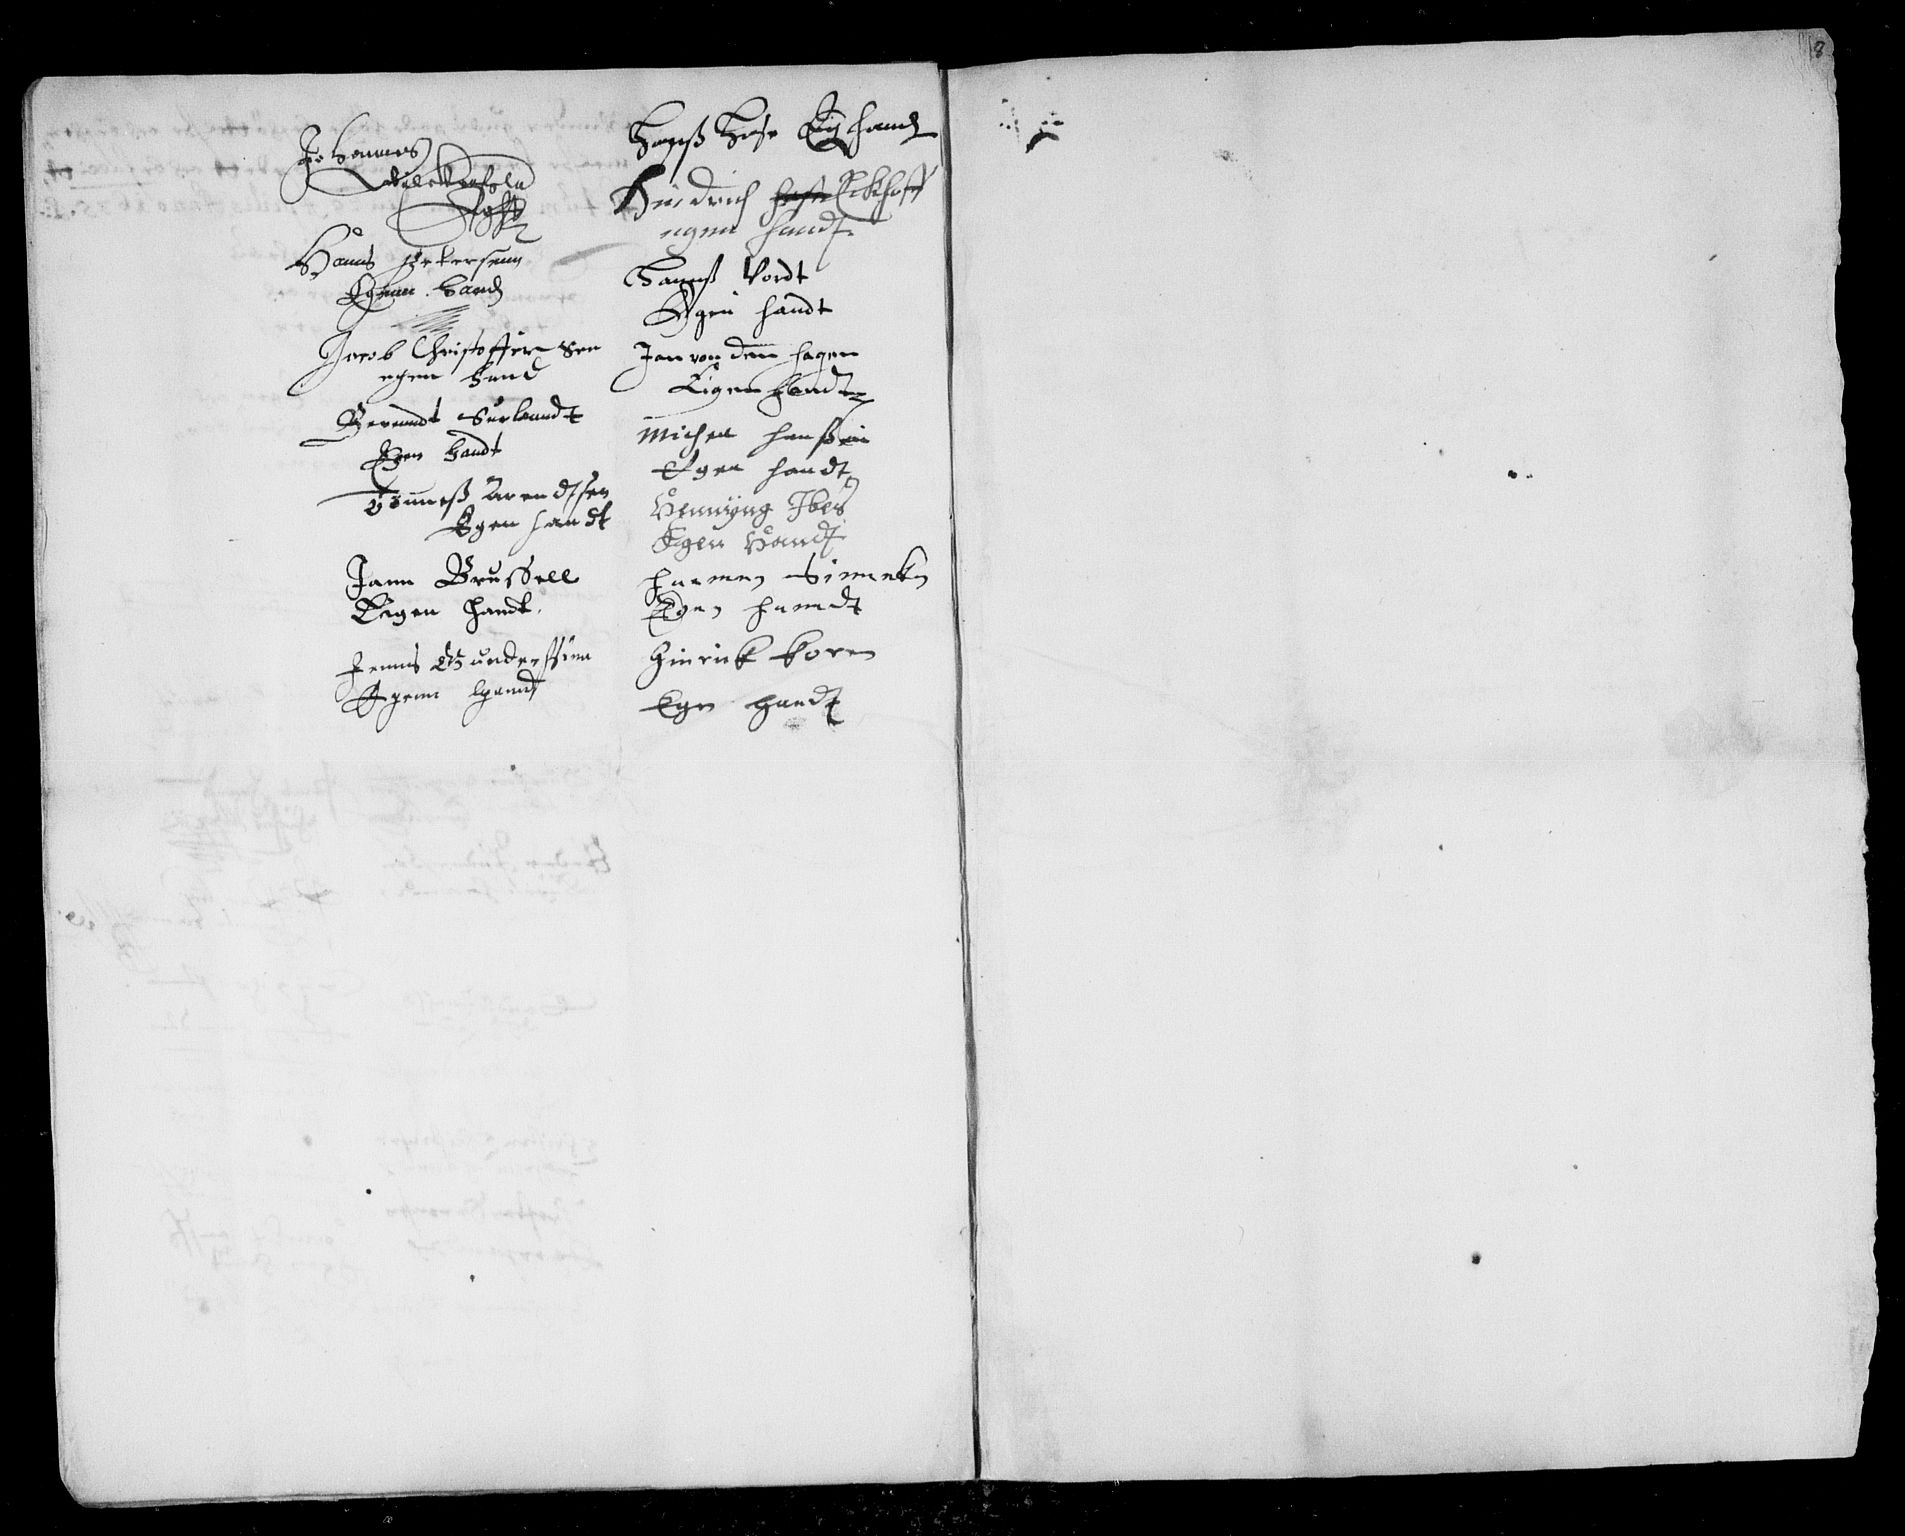 Johannes
Hanns petersenn
Egenn hand
Jacob Christoffersen
egen hand
Berendt Surlandt
Egen handt
Tönneß Arendtsen
Egen handt
Jann Brussell
Eigen handt.
Jenns Gunderssenn
Egenn hannd
Hanß Hose Eig hand
Hindrich Eckhoff
egen handt
Hanß Vordt
Egen handt
Jan von dem hagen
Eigen handt
Michel hanßen
Egen handt
Henning Ibes
Egen Handt
harmen Simmekn
Egen handt
Hinrick koren
Egen handt
8